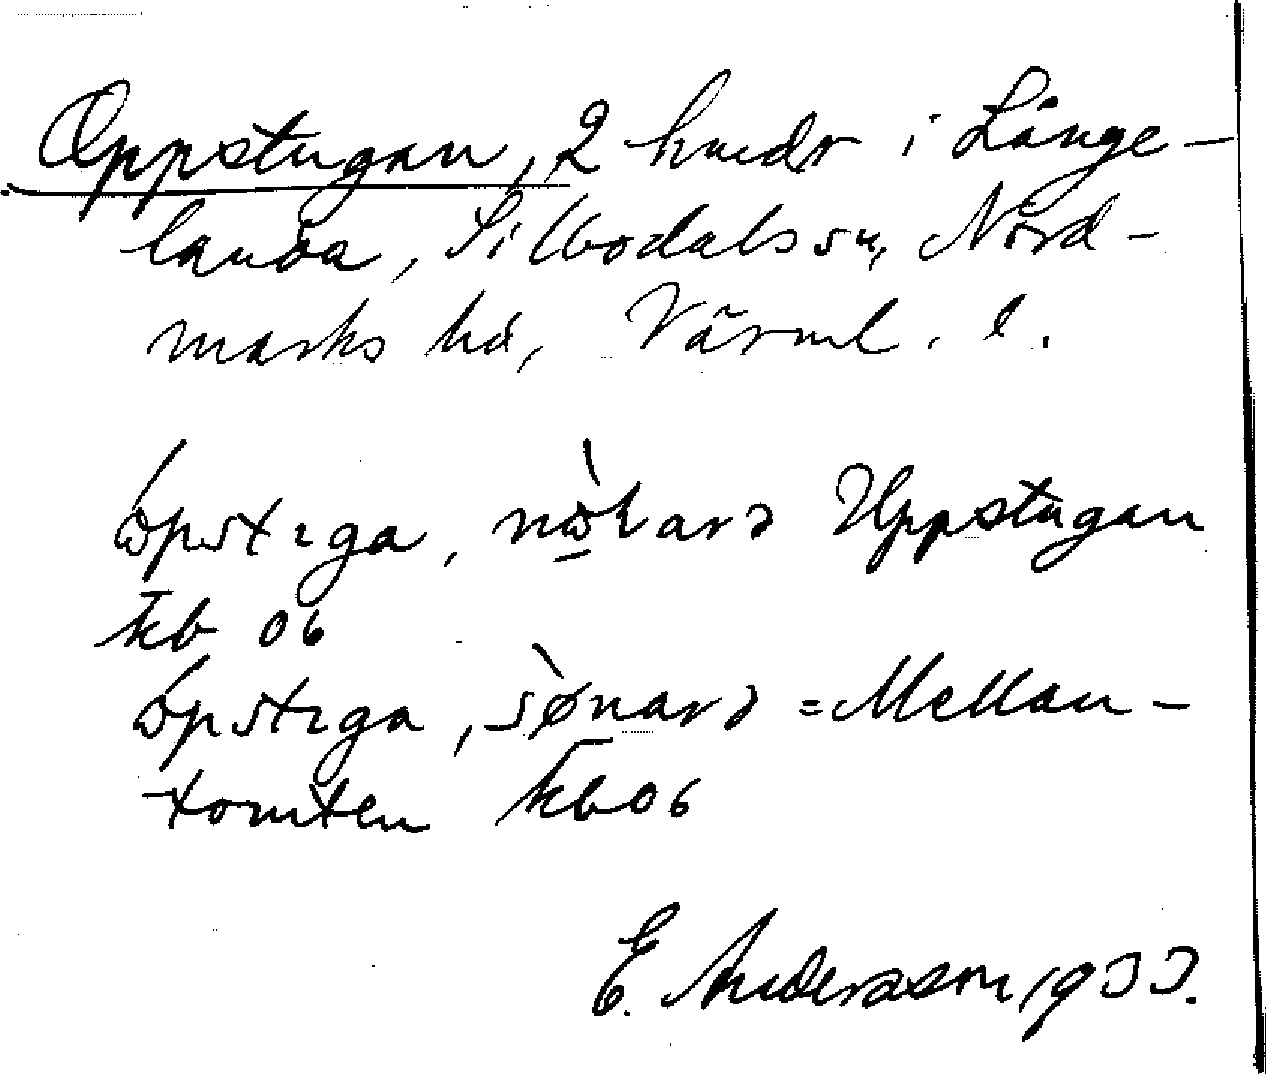 Oppstugan, 2 hmdr i Långe-
landa, Silbodals sn, Nord-
marks hd, Värml. l.
opstꞮga, nolarə Uppstugan
kb 06
opstꞮga, sønarə = Mellan-
tomten kb 06
E. Andersson 1933.